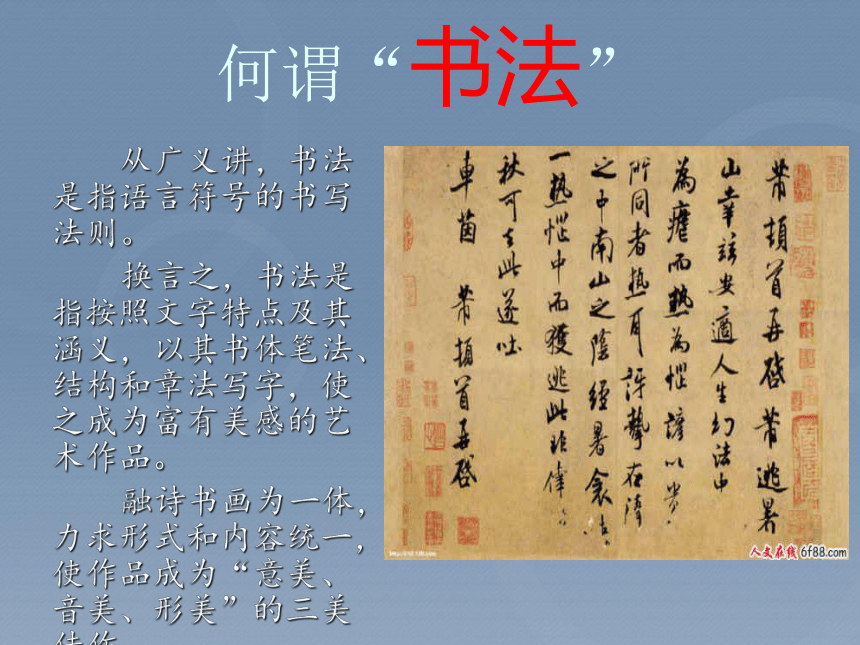 何谓“书法”
从广义讲，书法
是指语言符号的书写
法则。
换言之，书法是
指按照文字特点及其
涵义，以其书体笔法、
结构和章法写字，使
之成为富有美感的艺
术作品。
融诗书画为一体，
力求形式和内容统一，
使作品成为“意美、
音美、形美”的三美
佳作
芾頓首再啓芾逃暑
山幸茲安適人生幻法中
為瘧而熱為惱諺以貴
所同者熱耳訝摯在清
之中南山之陰經暑衾
一熱惱中而獲逃此非偉
秋可去此遂吐
車茵 芾頓首再啓
人文在线 6f88.com